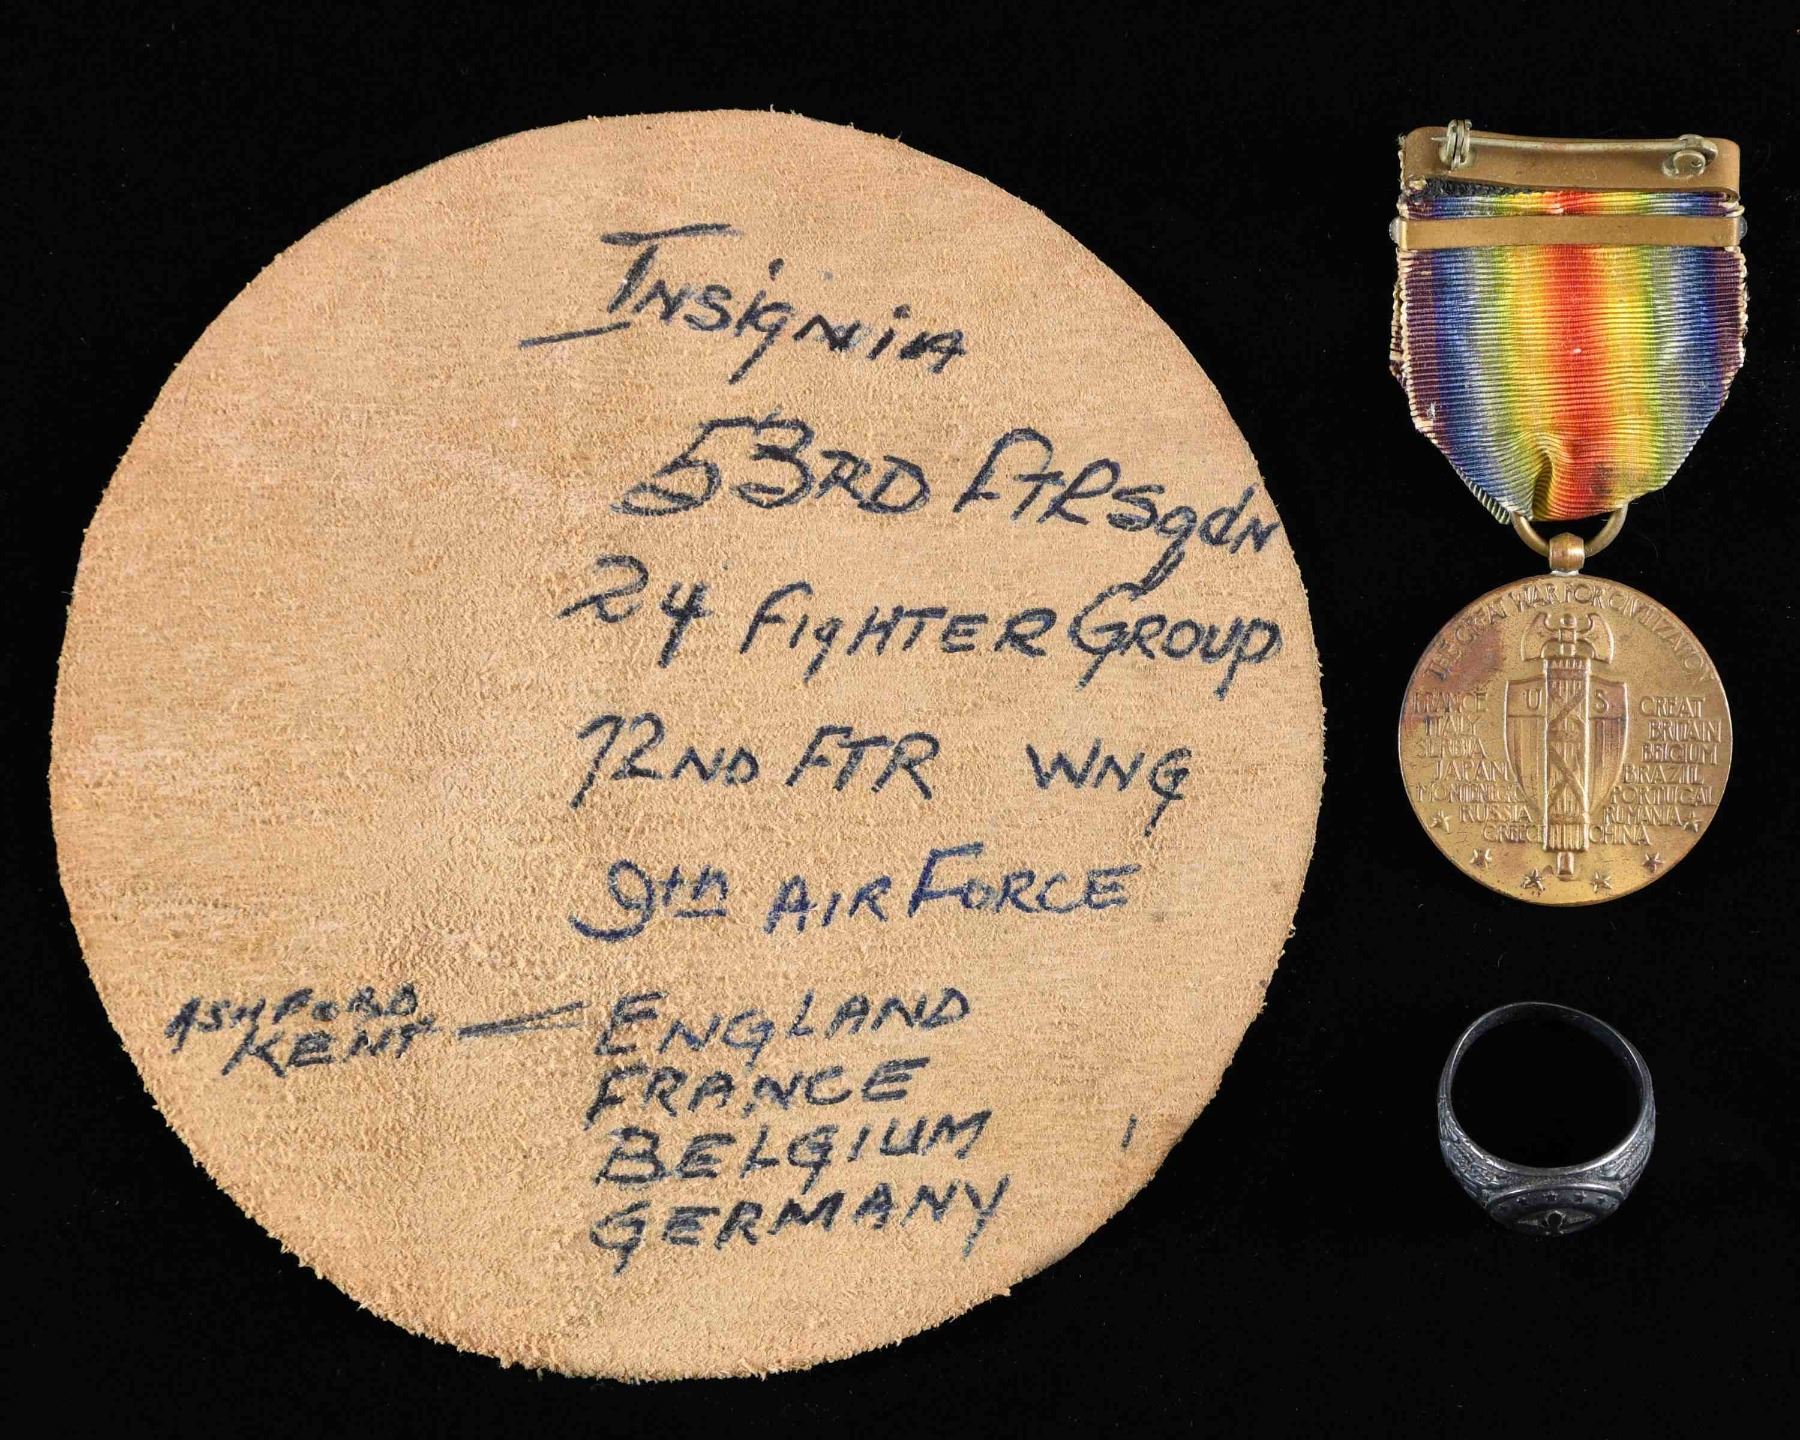 Insignia
53RD FTR Sqdn
24 Fighter Group
72ND FTR WNG
9th AIR FORCE
ASHFORD
KENT
ENGLAND
FRANCE
BELGIUM
GERMANY
THE GREAT WAR FOR CIVILIZATION
U S
FRANCE
ITALY
SERBIA
JAPAN
MONTENEGRO
RUSSIA
GREECE
GREAT
BRITAIN
BELGIUM
BRAZIL
PORTUGAL
RUMANIA
CHINA